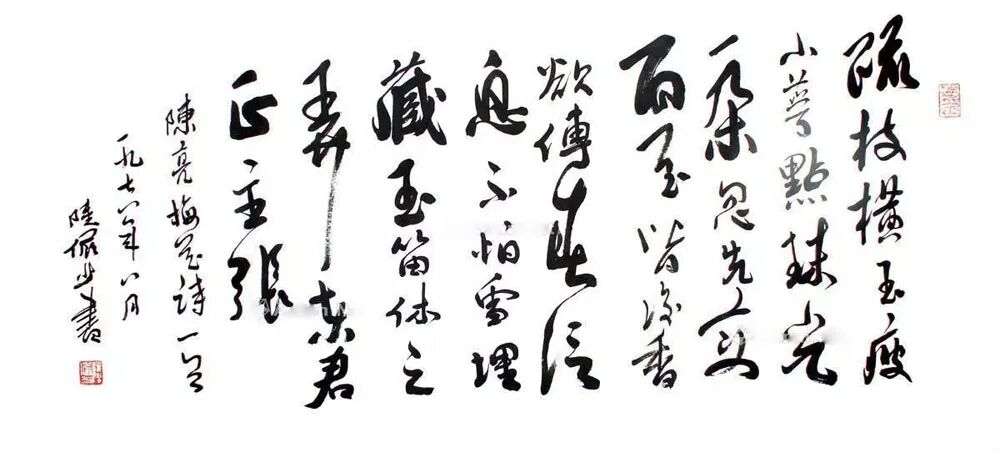 疏枝橫玉瘦
小萼點珠光
一朵忽先変
百花皆後香
欲傳春信
息不怕雪埋
藏玉笛休三
弄東君
正主張
陳亮梅花詩一首
一九七八年八月
陸儼少書